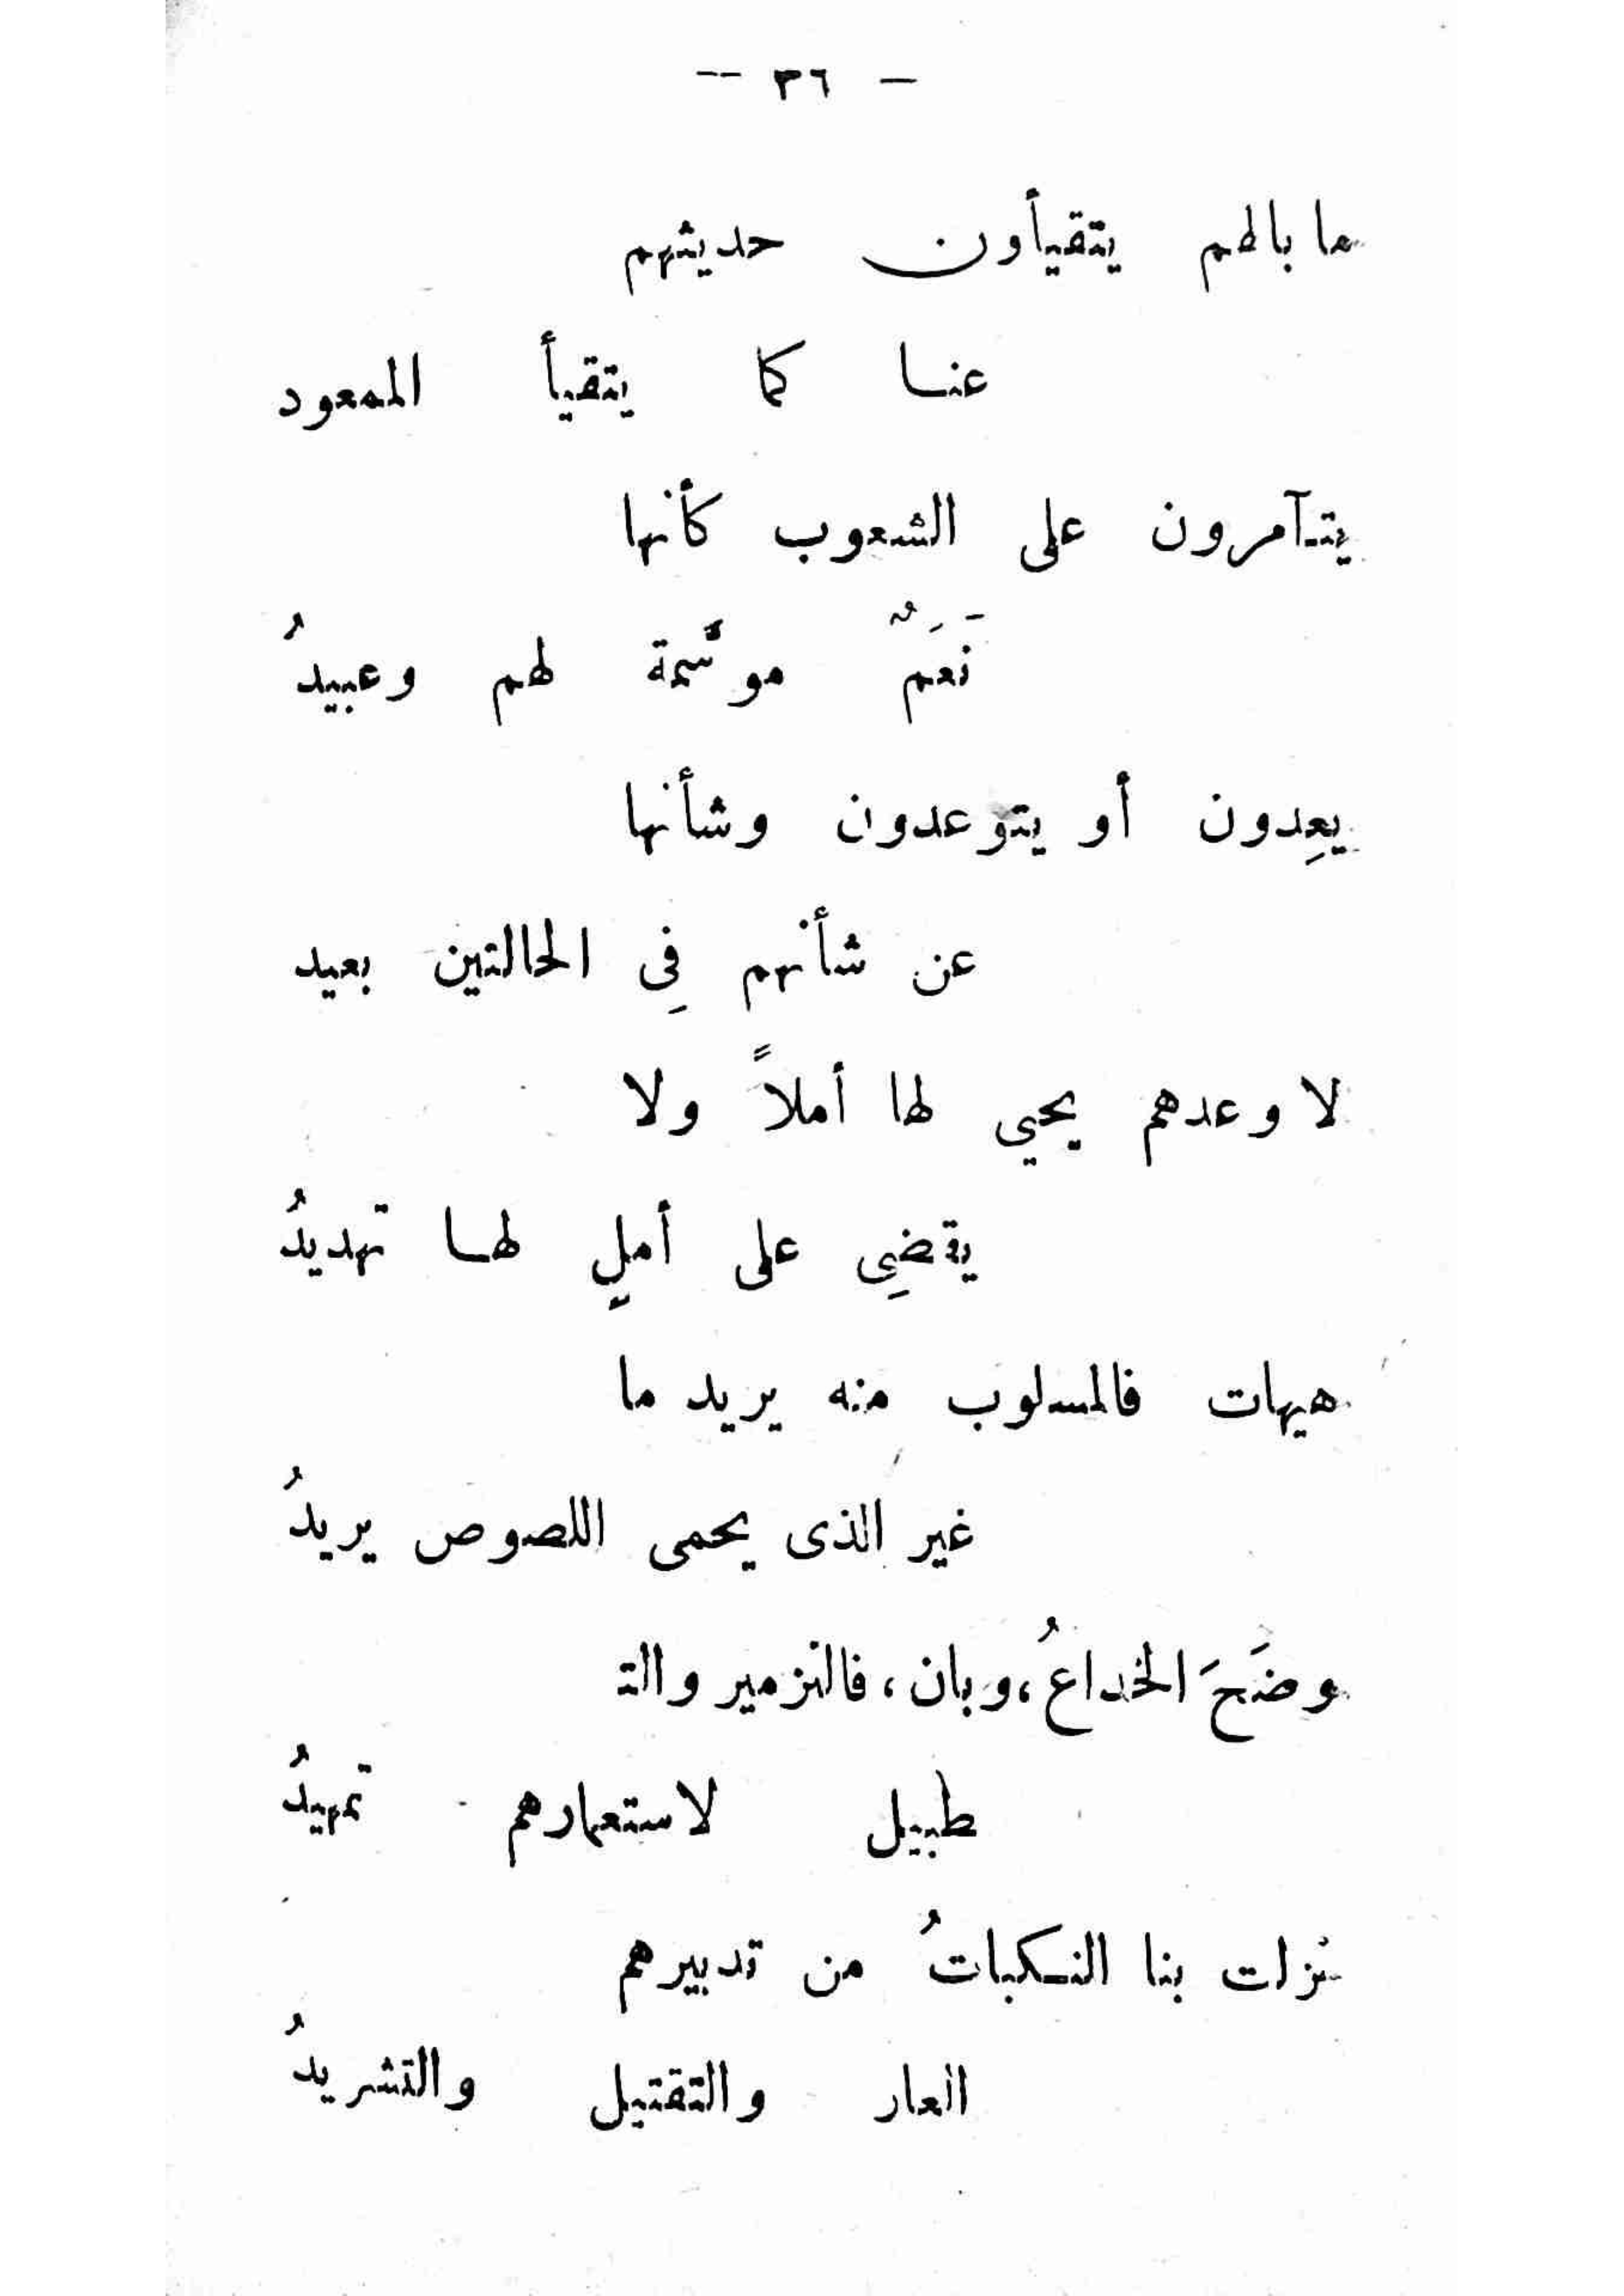 — ٣٦ —
ما بالهم يتقيأون حديثهم
عنا كما يتقيأ الممعود
يتآمرون على الشعوب كأنها
نَعَمٌ موسَّمة لهم وعبيدُ
يعِدون أو يتوعدون وشأنها
عن شأنهم فِى الحالتين بعيد
لا وعدهم يحيي لها أملاً ولا
يقضِى على أملٍ لها تهديدُ
هيهات فالمسلوب منه يريد ما
غير الذى يحمى اللصوص يريدُ
وضَحَ الخداعُ، وبان، فالتزمير والتـ
طبيل لاستعمارهم تمهيدُ
نزلت بنا النكباتُ من تدبيرهم
العار والتقتيل والتشريدُ